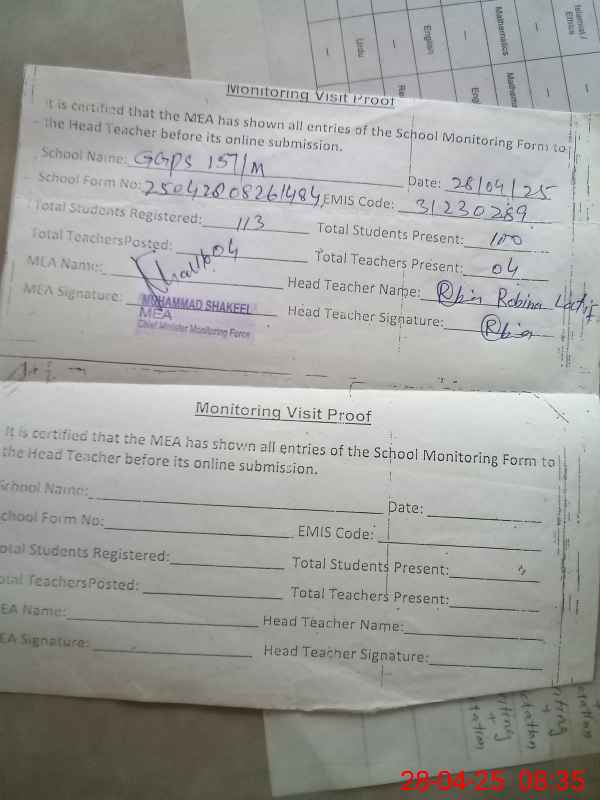 Islamiat / Ethics
Mathematics
English
Urdu
Monitoring Visit Proof
It is certified that the MEA has shown all entries of the School Monitoring Form to
the Head Teacher before its online submission.
School Name: GGPS 157/M Date: 28/04/25
School Form No: 25042808261484 EMIS Code: 31230289
Total Students Registered: 113 Total Students Present: 100
Total TeachersPosted: 04 Total Teachers Present: 04
MEA Name: Head Teacher Name: Robina Lactif
MEA Signature: MUHAMMAD SHAKEEL Head Teacher Signature:
MEA
Chief Minister Monitoring Force
Monitoring Visit Proof
It is certified that the MEA has shown all entries of the School Monitoring Form to
the Head Teacher before its online submission.
School Name: Date:
chool Form No: EMIS Code:
otal Students Registered: Total Students Present:
otal TeachersPosted: Total Teachers Present:
EA Name: Head Teacher Name:
EA Signature: Head Teacher Signature:
28-04-25 08:35